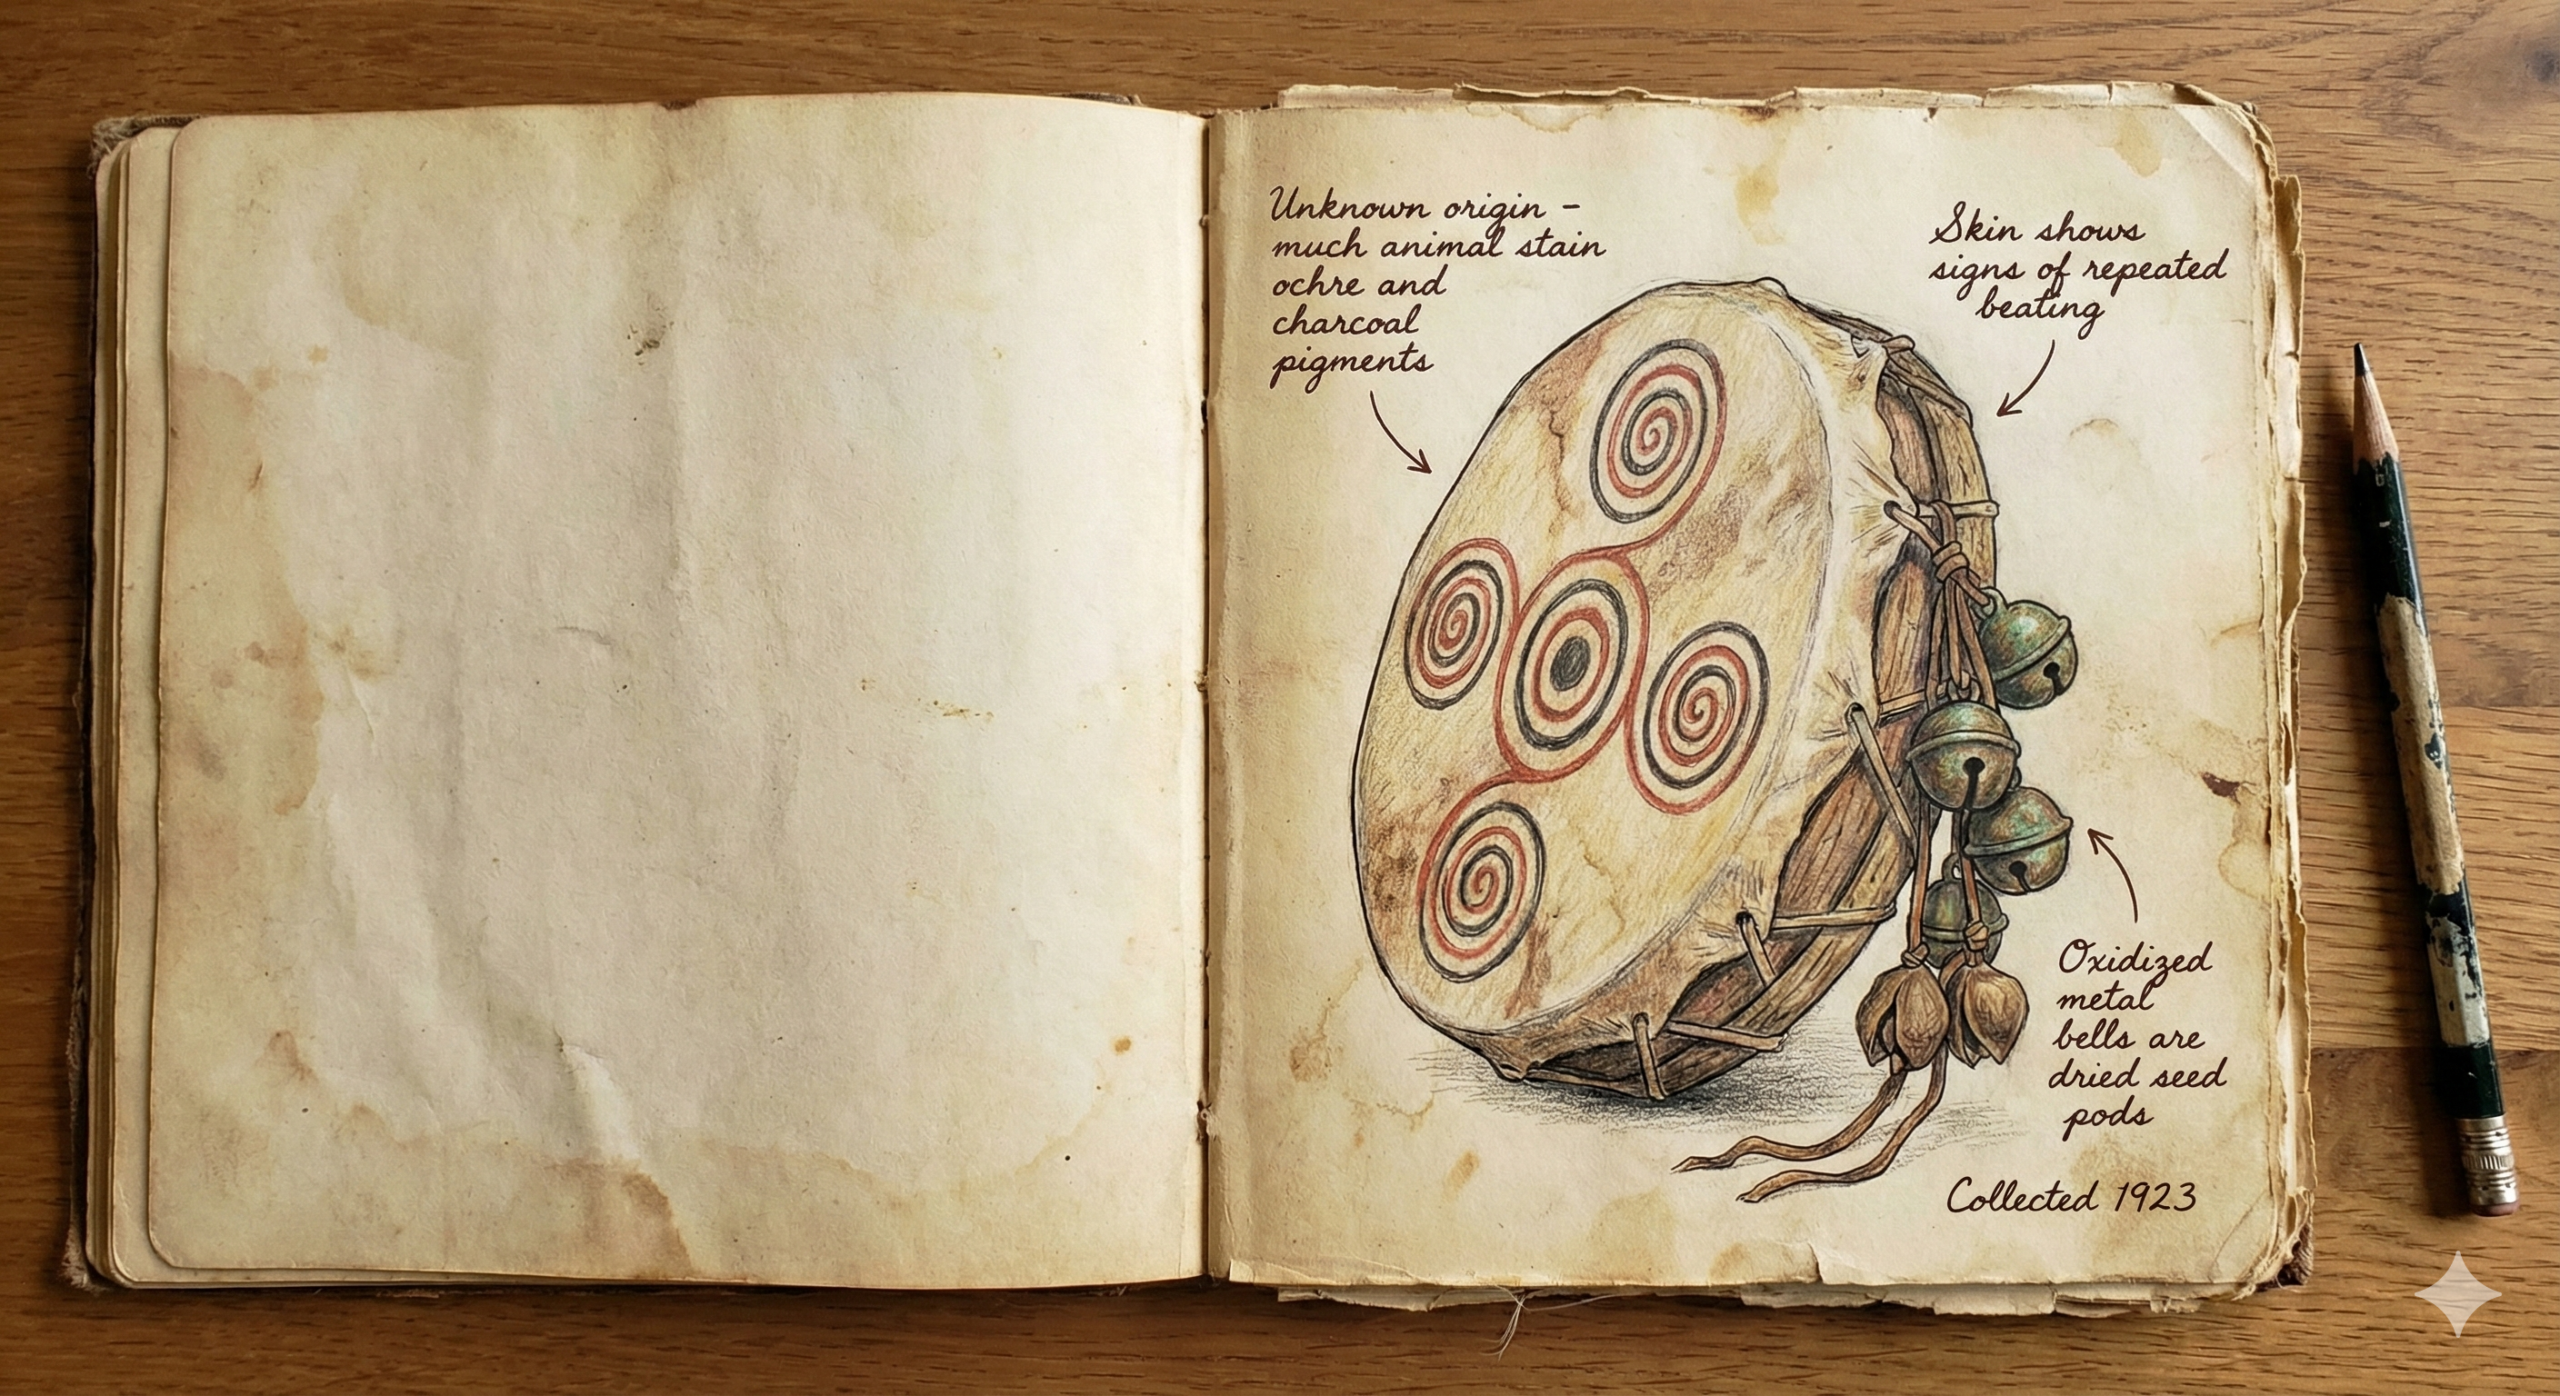 Unknown origin –
much animal stain
ochre and
charcoal
pigments
Skin shows
signs of repeated
beating
Oxidized
metal
bells are
dried seed
pods
Collected 1923